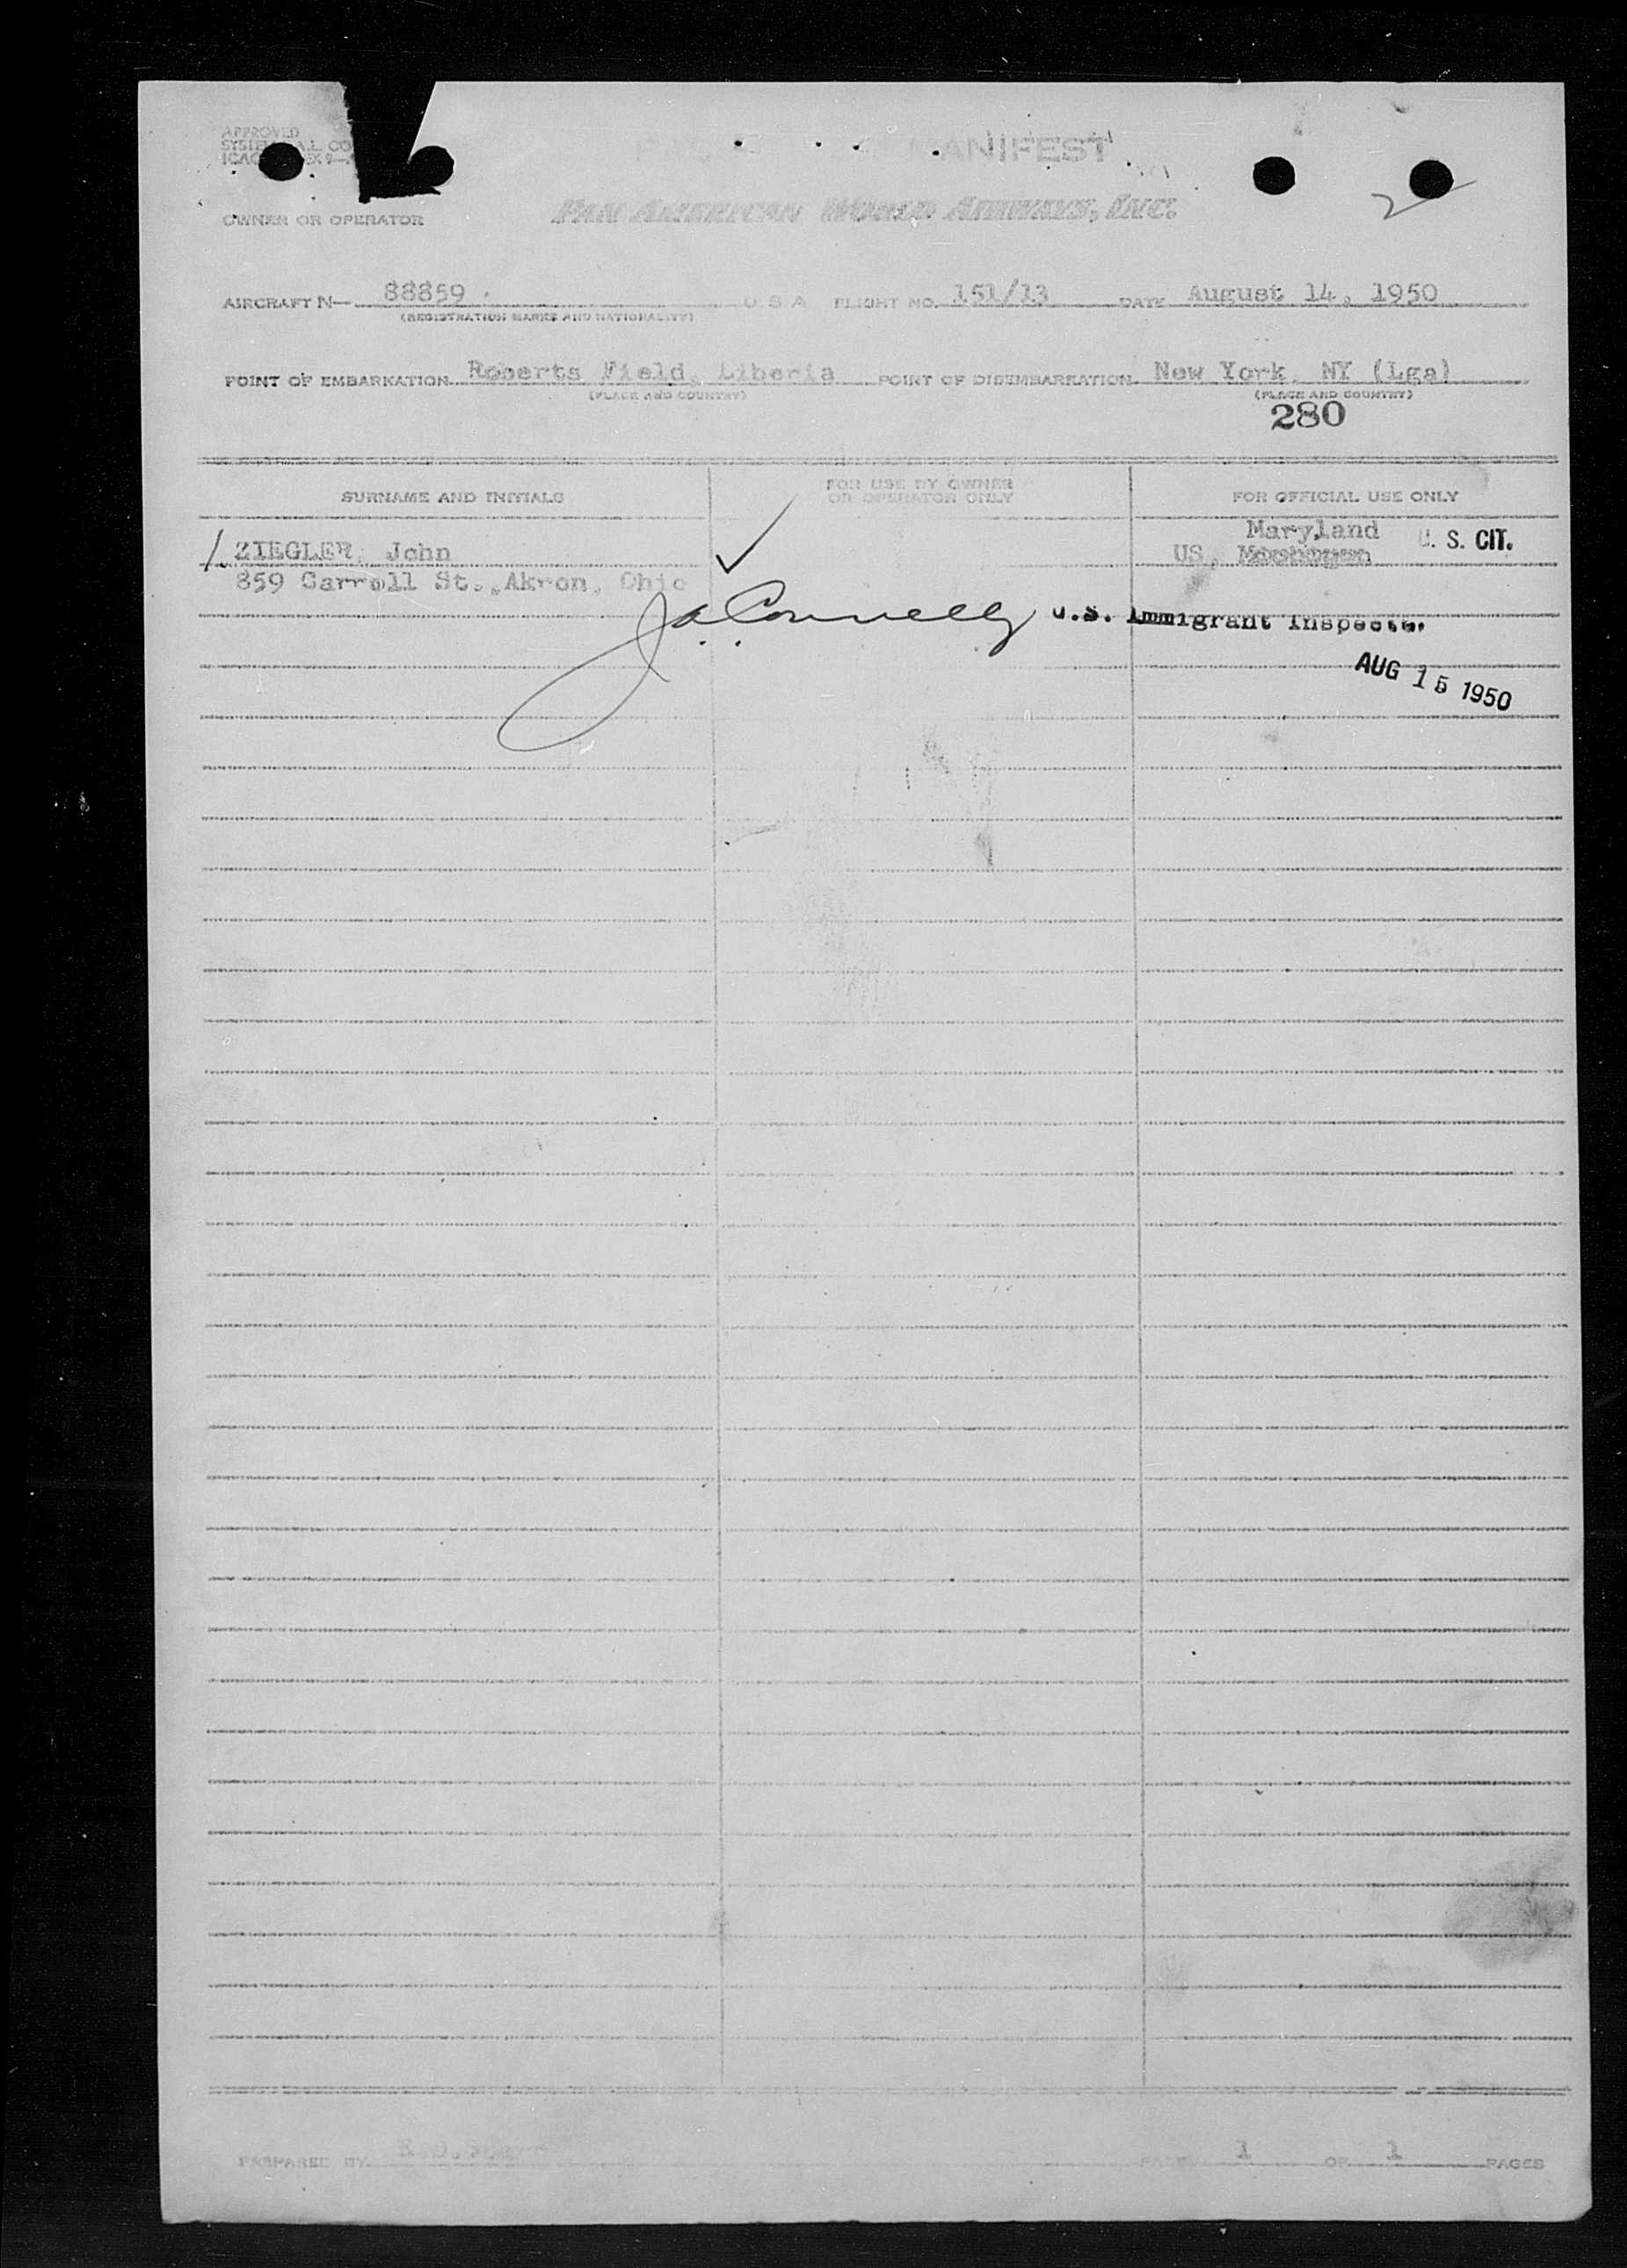 APPROVED
OWNER OR OPERATOR
MANIFEST
2
PAN AMERICAN WORLD AIRWAYS, INC.
AIRCRAFT N— 88859 U S A FLIGHT NO. 151/13 DATE August 14, 1950
(REGISTRATION MARKS AND NATIONALITY)
POINT OF EMBARKATION Roberts Field, Liberia POINT OF DISEMBARKATION New York, NY (Lga)
(PLACE AND COUNTRY) (PLACE AND COUNTRY)
280
SURNAME AND INITIALS FOR USE BY OWNER OR OPERATOR ONLY FOR OFFICIAL USE ONLY
Maryland U. S. CIT.
1. ZIEGLER, John US,
859 Carroll St., Akron, Ohio
JA Connelly U.S. Immigrant Inspector
AUG 15 1950
PREPARED BY PAGE 1 OF 1 PAGES